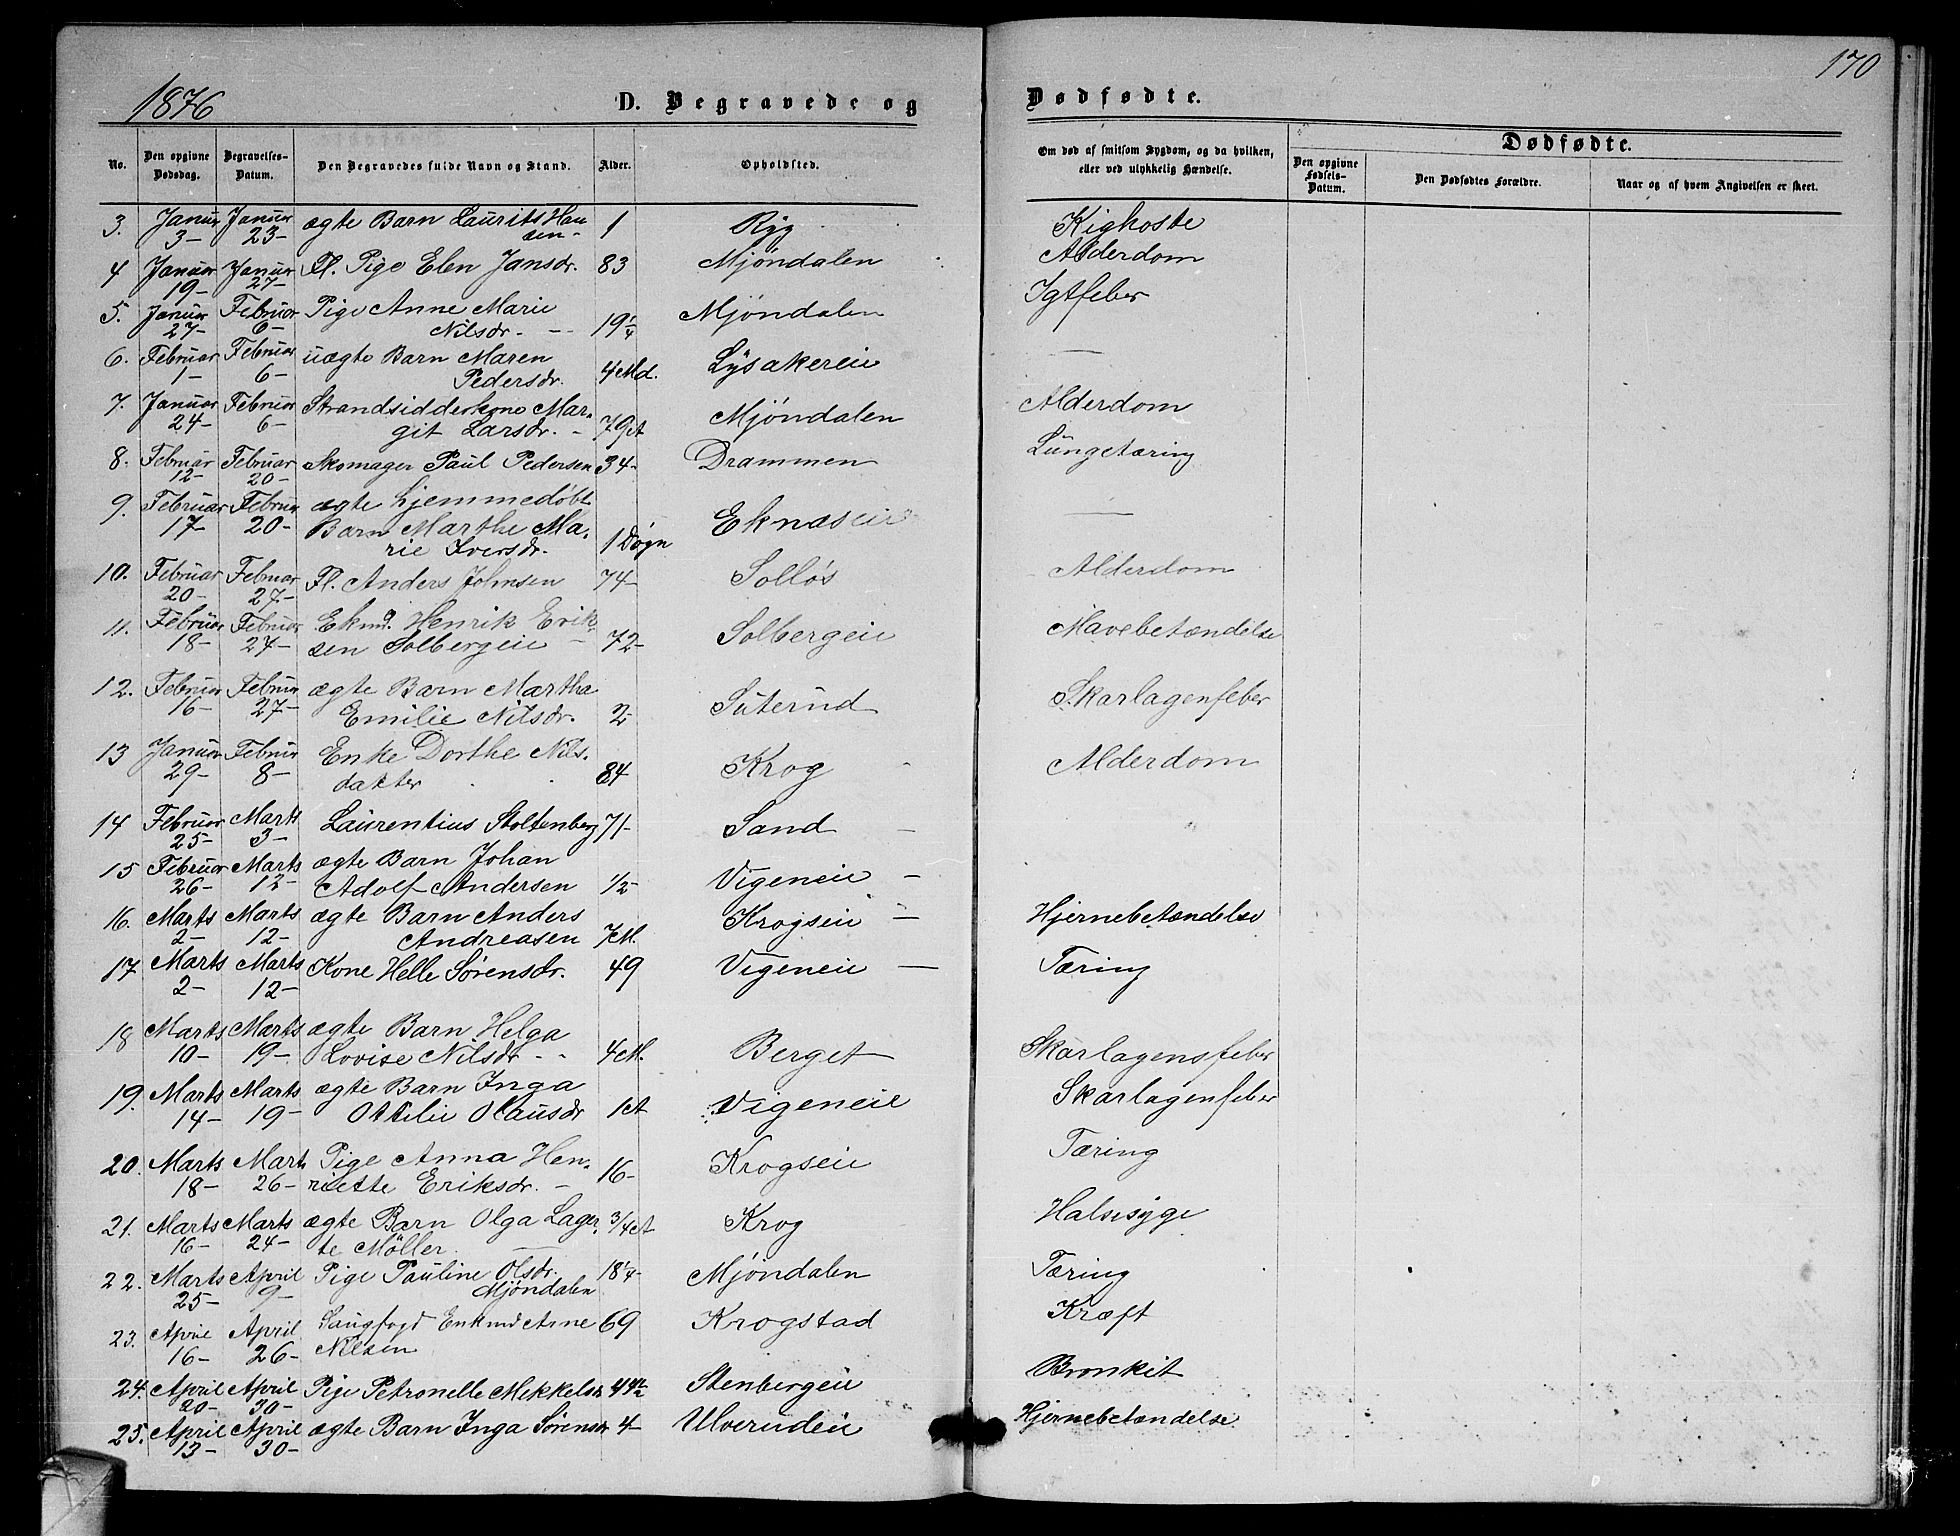 170
1876
D. Begravede og Dødfødte.
No. Den opgivne Dødsdag. Begravelses-Datum. Den Begravedes fulde Navn og Stand. Alder. Opholdsted. Om død af smitsom Sygdom, og da hvilken, eller ved ulykkelig Hændelse. Dødfødte. Den opgivne Fødsels-Datum. Den Dødfødtes Forældre. Naar og af hvem Angivelsen er skeet.
3. Januar 3- Januar 23- ægte Barn Laurits Hansen- 1 Ryg Kighoste
4 Januar 19- Januar 27- Fl. Pige Elen Jansdr. 83 Mjøndalen Alderdom
5. Januar 27- Februar 6- Pige Anne Marie Nilsdr. - 19 1/4 Mjøndalen Igtfeber
6. Februar 1- Februar 6- uægte Barn Maren Pedersdr. 4 Md. Lysakereie —
7. Januar 24- Februar 6- Strandsidderkone Margit Larsdr. - 79 A Mjøndalen Alderdom
8. Februar 12- Februar 20- Skomager Paul Pedersen 34- Drammen Lungetæring
9. Februar 17- Februar 20- ægte hjemmedøbt Barn Marthe Marie Iversdr. 1 Døgn Eknæseie —
10. Februar 20- Februar 27- Fl. Anders Johnsen 74- Solløs Alderdom
11. Februar 18- Februar 27- Ekmd. Henrik Eriksen Solbergeie - 72- Solbergeie Mavebetændelse
12. Februar 16- Februar 27- ægte Barn Martha Emilie Nilsdr. 2- Suterud Skarlagenfeber
13 Januar 29- Februar 8- Enke Dorthe Nilsdatter 84 Krog Alderdom
14 Februar 25- Marts 3- Laurentius Stoltenberg 71- Sand -
15 Februar 26- Marts 12- ægte Barn Johan Adolf Andersen 1/2- Vigeneie -
16. Marts 2- Marts 12- ægte Barn Anders Andreasen 7 M. Krogseie - Hjernebetændelse
17 Marts 2- Marts 12- Kone Helle Sørensdr. 49 Vigeneie - Tæring
18 Marts 10- Marts 19- ægte Barn Helga Lovise Nilsdr - - 4 M. Berget Skarlagensfeber
19. Marts 14- Marts 19- ægte Barn Inga Ottilie Olausdr 1 A Vigeneie Skarlagenfeber
20. Marts 18- Marts 26- Pige Anna Henriette Eriksdr. - 16- Krogseie Tæring
21. Marts 16- Marts 24- ægte Barn Olga Lagerte Möller 3/4 A Krog Halssyge
22. Marts 25- April 9- Pige Pauline Olsdr. Mjøndalen 18 1/4- Mjøndalen Tæring
23. April 16- April 26- Saugfogd Enkmd Arne Nilsen 69 Krogstad Kræft
24. April 20- April 30- Pige Petronelle Mekkelsdr 44 1/2 Stenbergeie Bronkit
25. April 13- April 30- ægte Barn Inga Sørensdr 4- Ulverudeie Hjernebetændelse